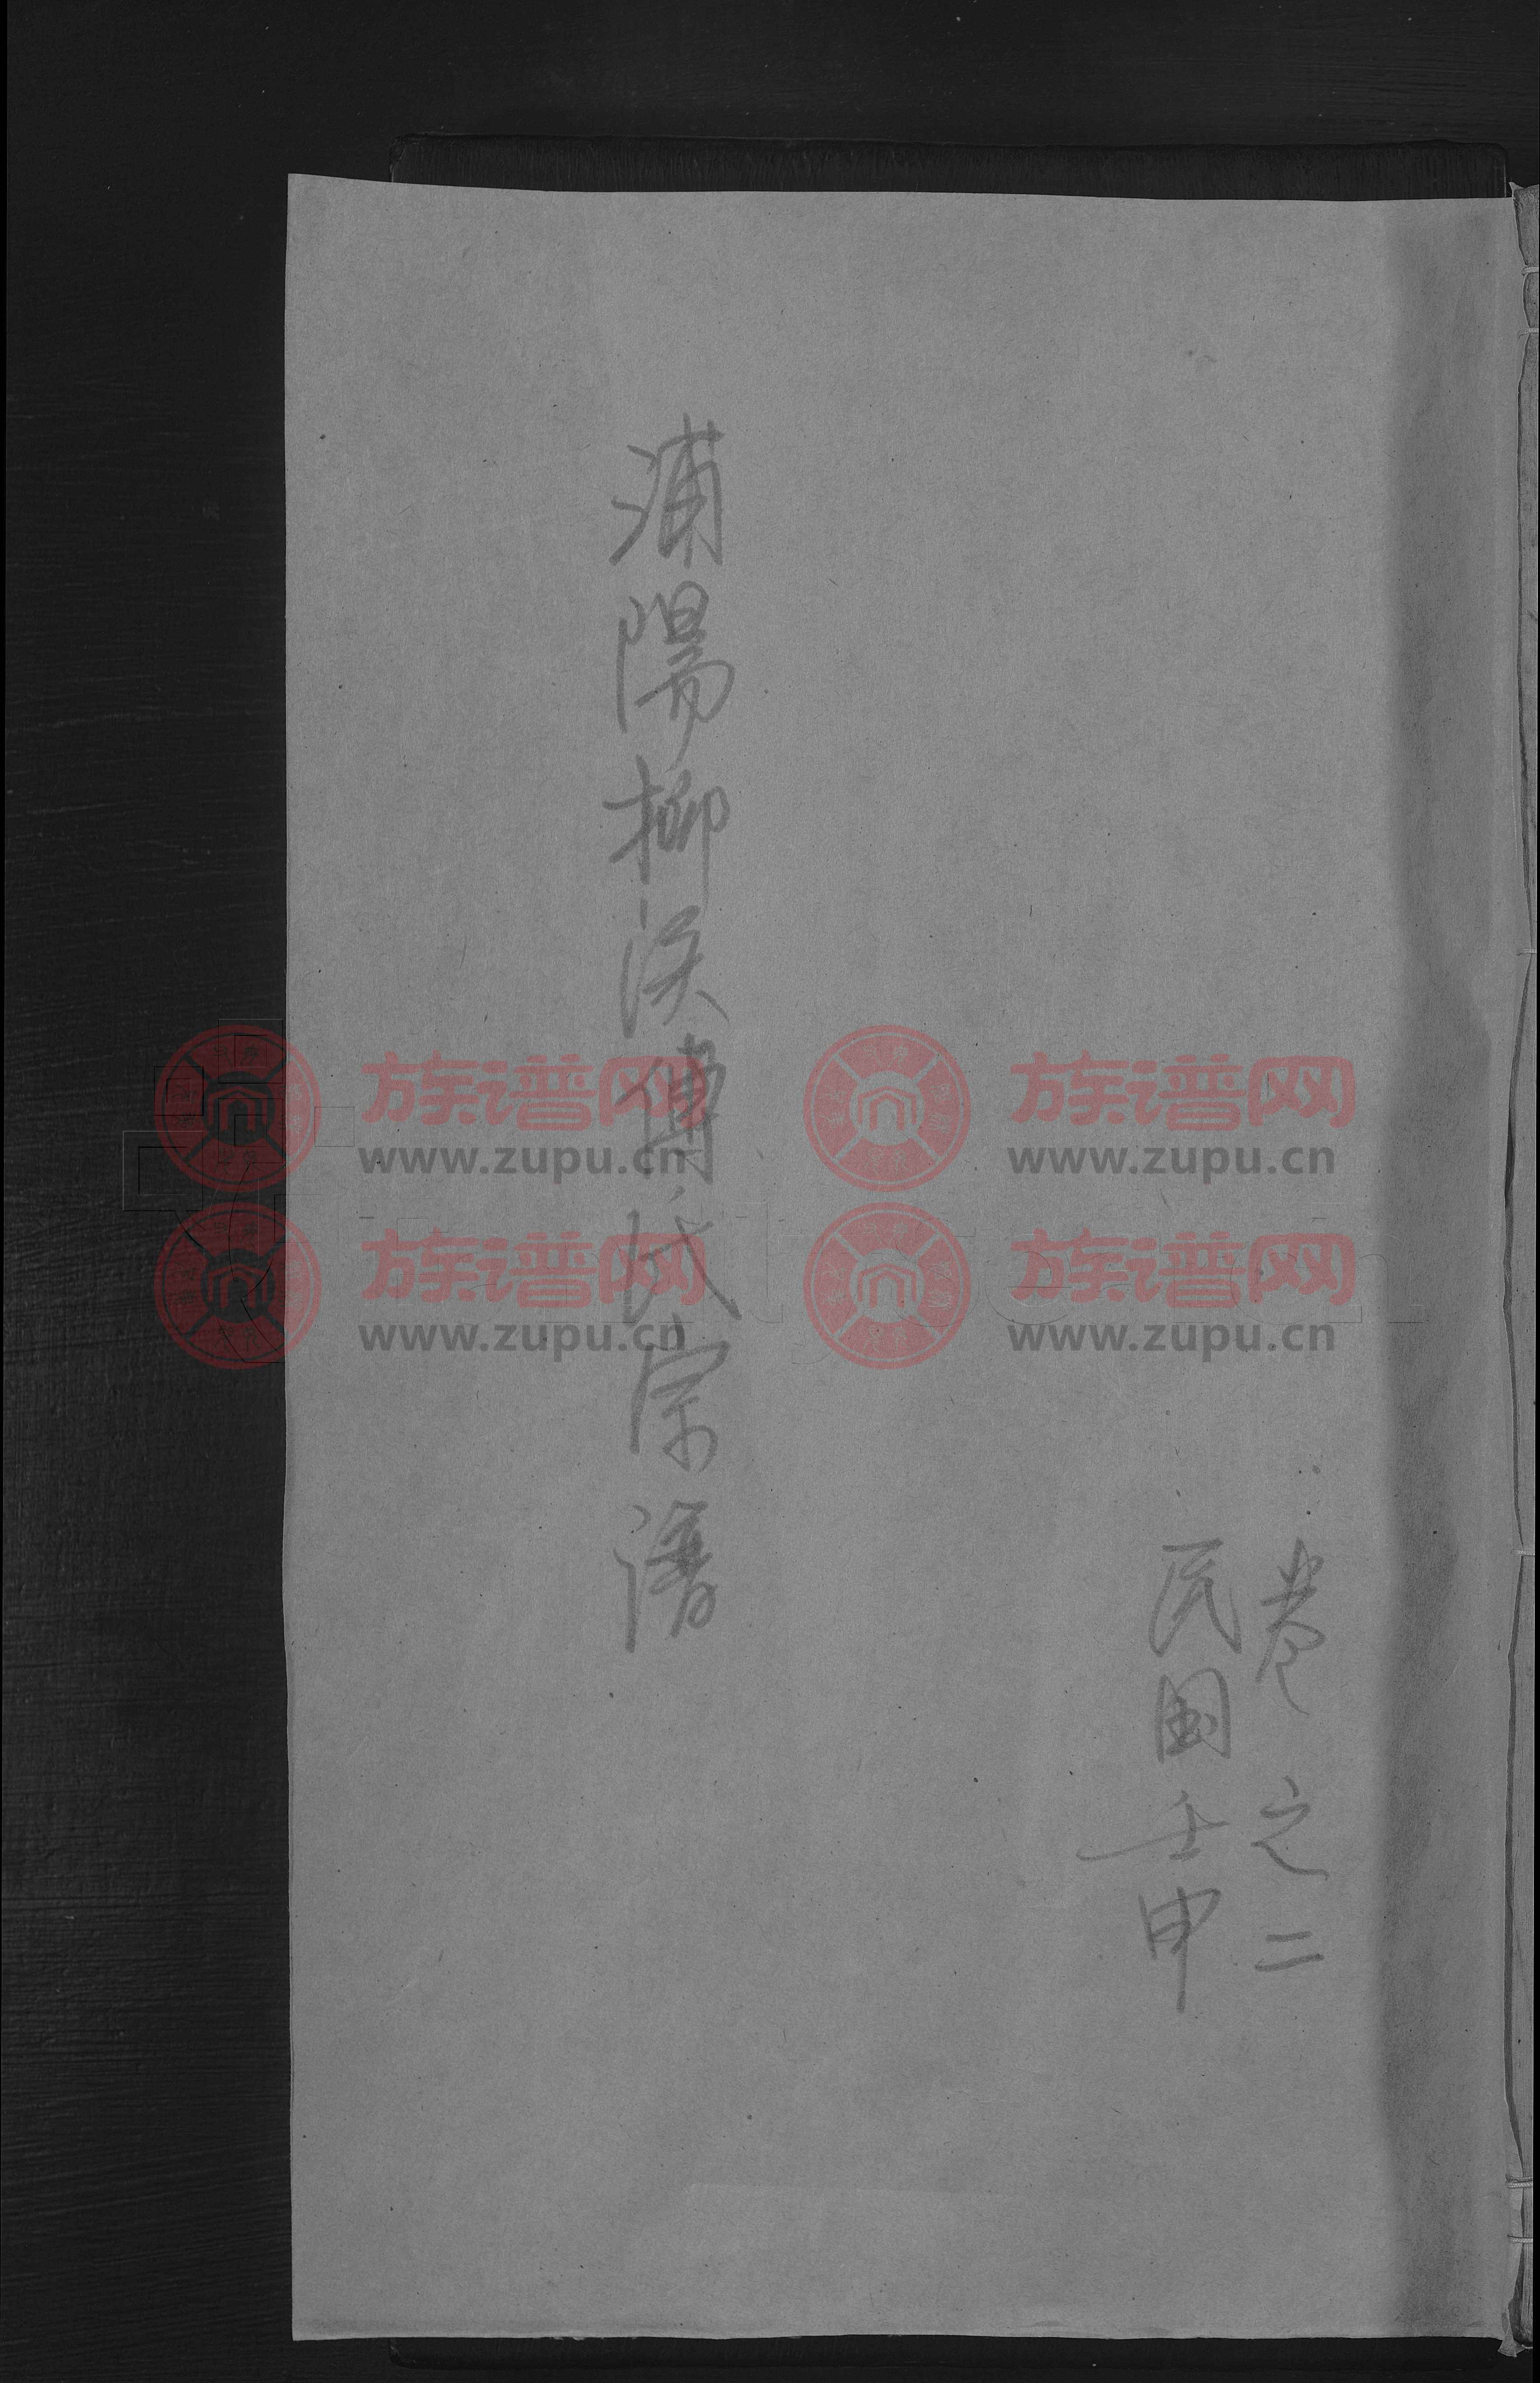 卷之二
民国壬申
浦陽柳溪傅氏宗譜
族谱网 族谱网
www.zupu.cn www.zupu.cn
族谱网 族谱网
www.zupu.cn www.zupu.cn